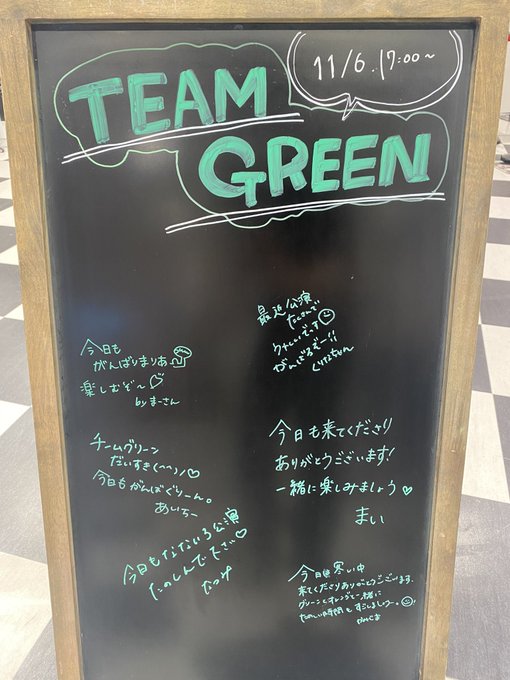 TEAM
GREEN
11/6 17:00~
最近公演
たのしいです
がんばるぞー!!
今日も
がんばりまりあ
楽しむぞ〜♡
by まーさん
チームグリーン
だいすき(^^)/♡
今日もがんばぐりーん。
あいちー
今日も来てくださり
ありがとうございます!
一緒に楽しみましょう♡
まい
今日もなないろ公演
たのしんで下さい♡
なつめ
今日は寒い中
来てくださりありがとうございます。
グリーンとオレンジと一緒に
たのしい時間をすごしましょう。